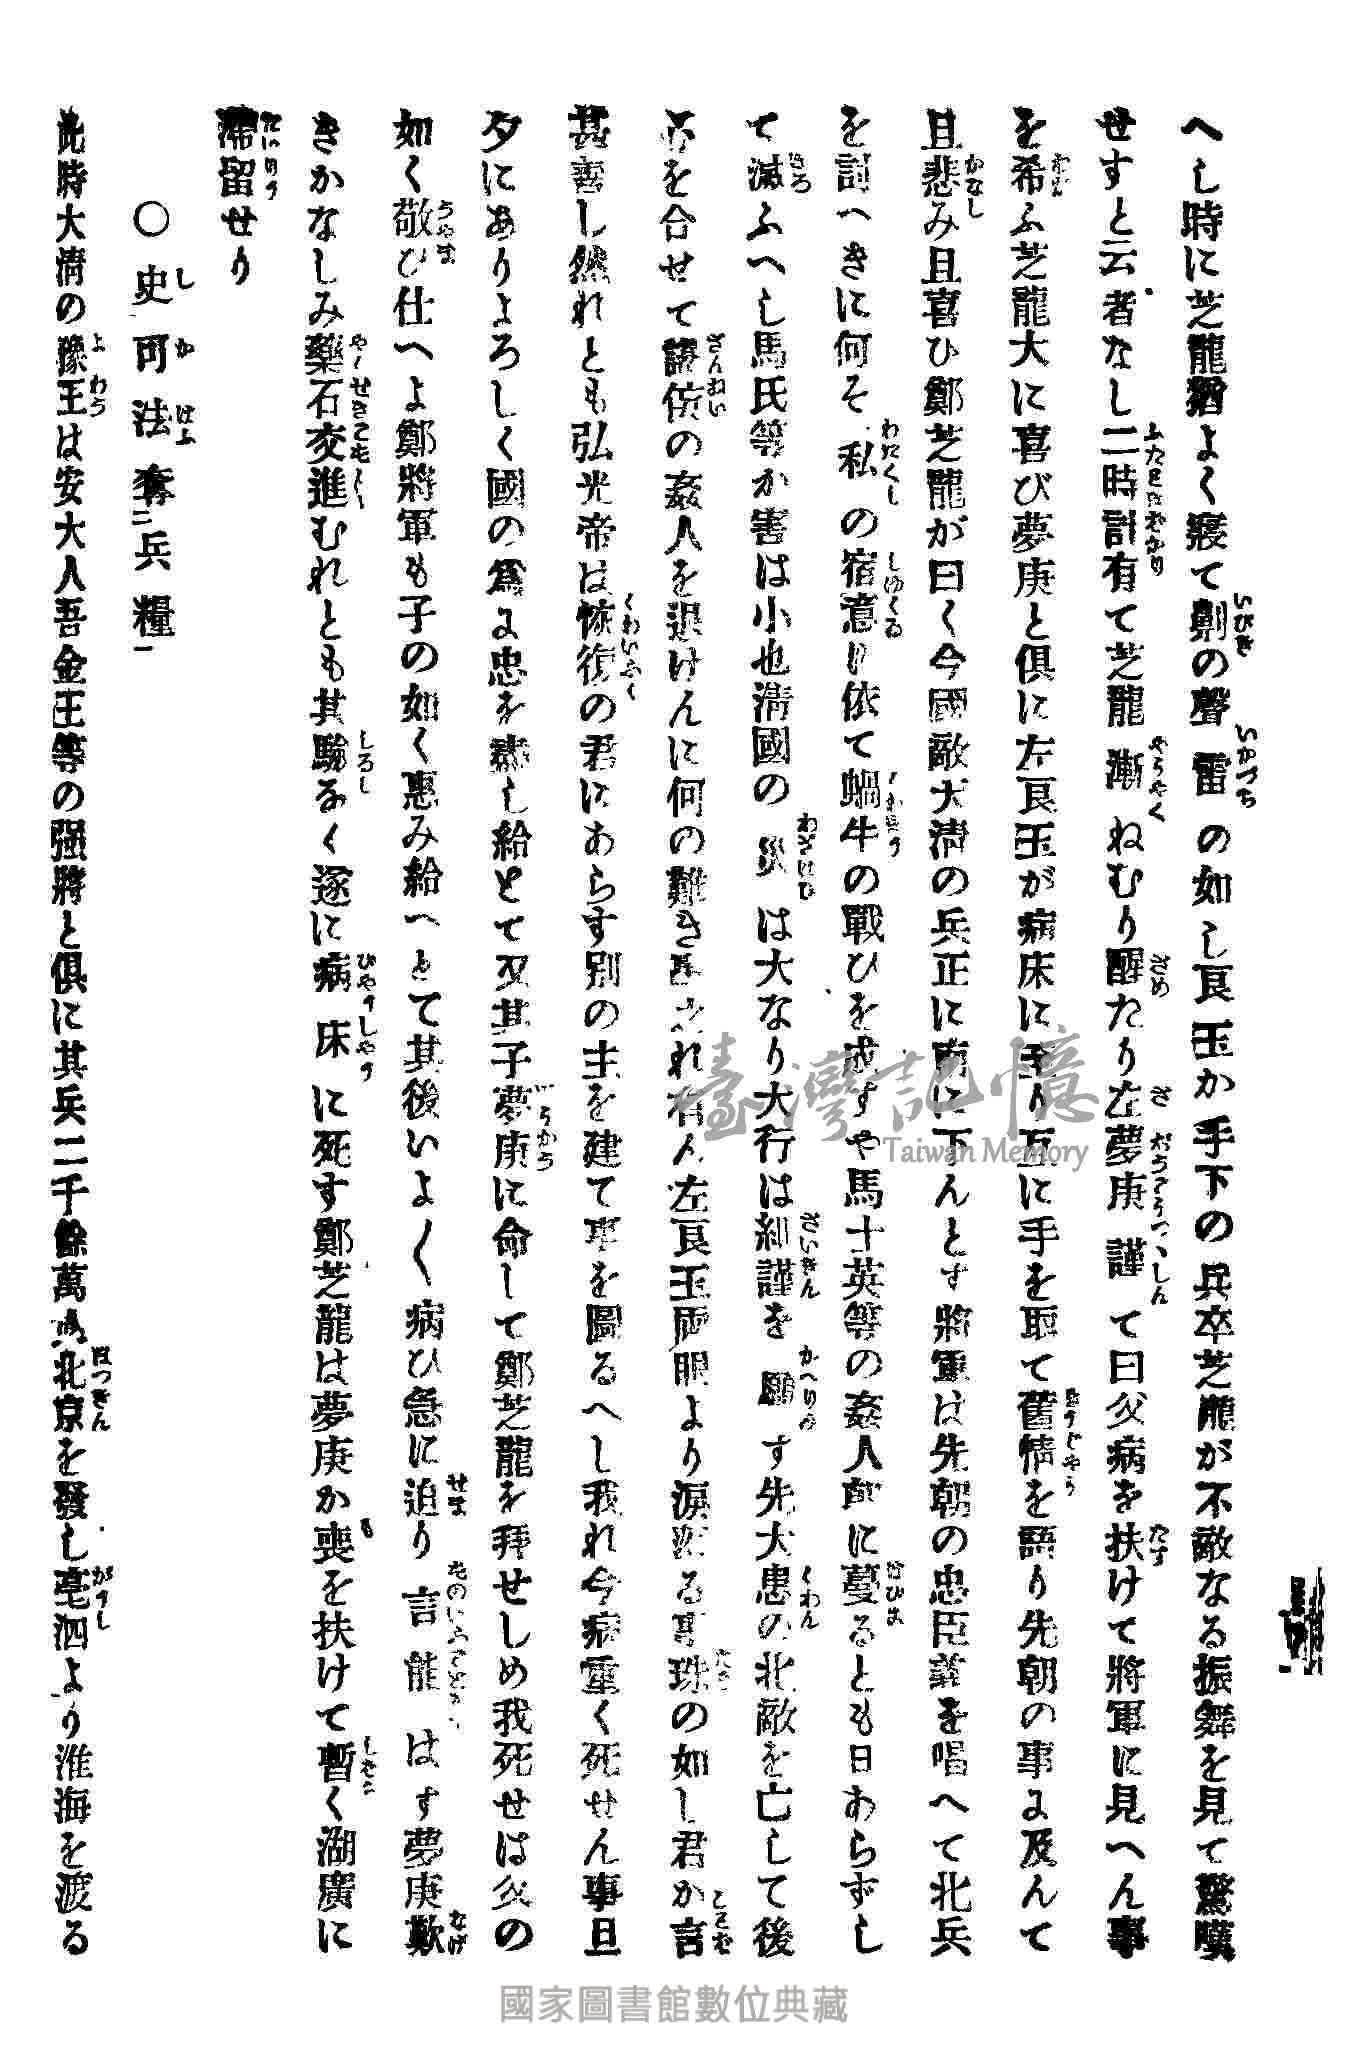 へし時に芝龍猶よく寢て鼾の聲雷の如し良玉か手下の兵卒芝龍が不敵なる振舞を見て驚嘆
せすと云者なし二時計有て芝龍漸ねむり醒たり左夢庚謹て曰父病を扶けて將軍に見へん事
を希ふ芝龍大に喜び夢庚と俱に左良玉が病床に至り互に手を取て舊情を語り先朝の事に及んて
且悲み且喜ひ鄭芝龍が曰く今國敵大淸の兵正に南に下んとす將軍は先朝の忠臣義を唱へて北兵
を討へきに何そ私の宿意に依て蝸牛の戰ひを成すや馬士英等の姦人朝に蔓るとも日あらずし
て滅ふへし馬氏等か害は小也淸國の災は大なり大行は細謹を顧す先大患の北敵を亡して後
心を合せて讒侫の姦人を退けんに何の難き事之れ有ん左良玉両眼より淚る事珠の如し君か言
甚善し然れとも弘光帝は恢復の君にあらす別の主を建て事を圖るへし我れ今病重く死せん事旦
夕にありよろしく國の爲に忠を盡し給とて又其子夢庚に命して鄭芝龍を拜せしめ我死せは父の
如く敬ひ仕へよ鄭將軍も子の如く惠み給へとて其後いよ〱病ひ急に迫り言能はす夢庚歎
きかなしみ藥石交進むれとも其驗なく遂に病床に死す鄭芝龍は夢庚か喪を扶けて暫く湖廣に
滯留せり
〇史可法奪二兵糧一
此時大淸の豫王は安大人吾金王等の强將と俱に其兵二千餘萬人北京を發し亳泗より淮海を渡る
臺灣記憶
Taiwan Memory
國家圖書館數位典藏